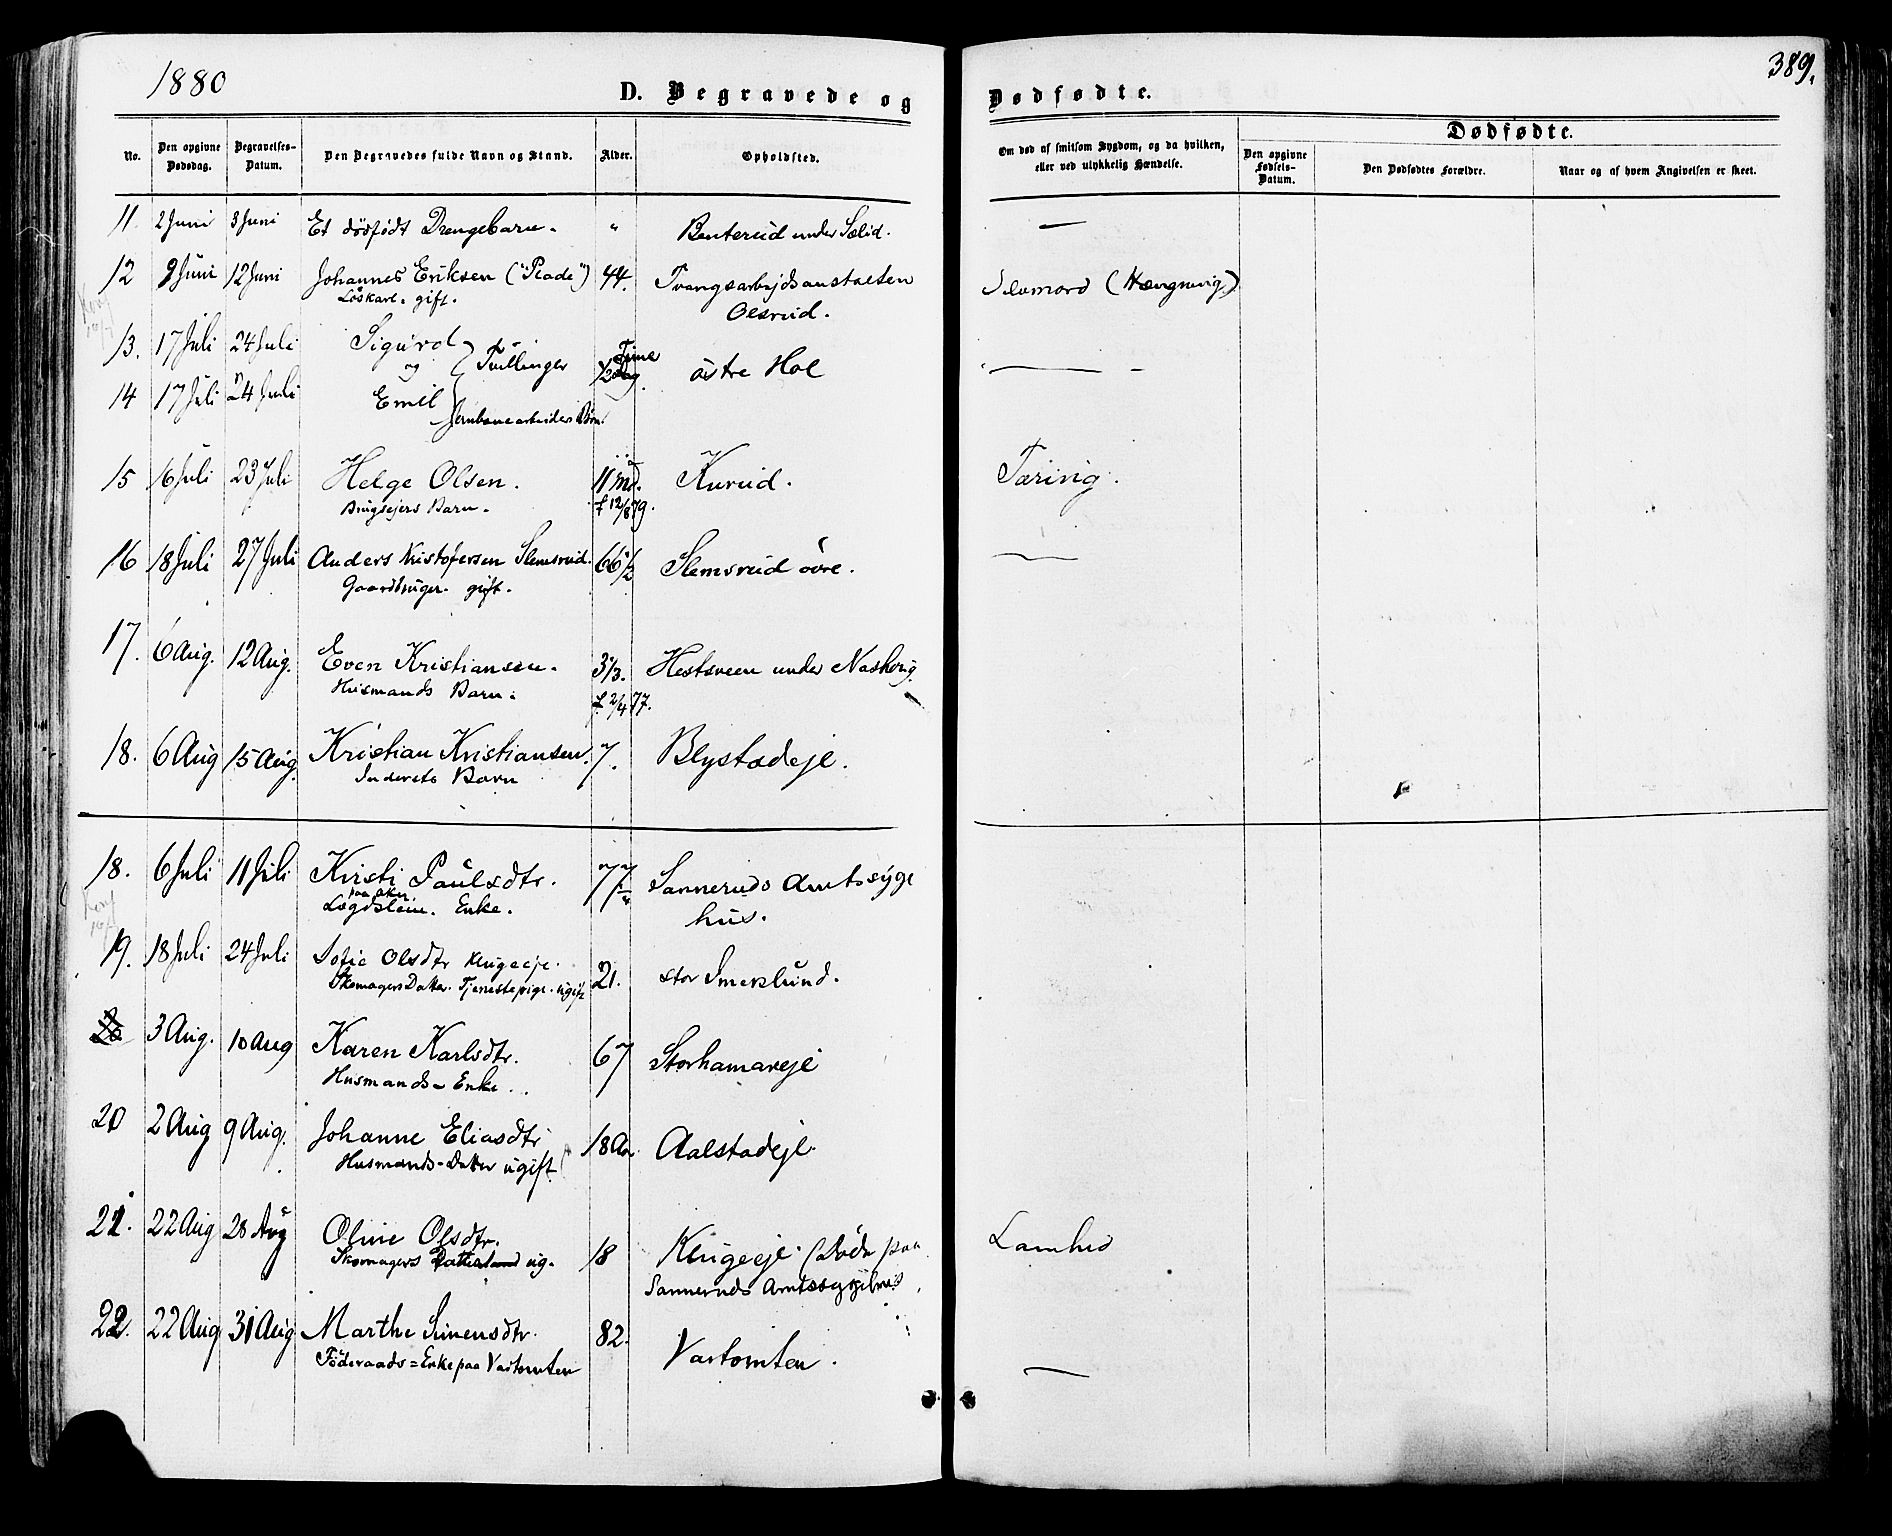 1880
389.
D. Begravede og Dødfødte.
No.
Den opgivne Dødsdag.
Begravelses-Datum.
Den Begravedes fulde Navn og Stand.
Alder.
Opholdsted.
Om død af smitsom Sygdom, og da hvilken, eller ved ulykkelig Hændelse.
Dødfødte.
Den opgivne Fødsels-Datum.
Den Dødfødtes Forældre.
Naar og af hvem Angivelsen er skeet.
11. 2 Juni 3 Juni Et dödfödt Drengebarn. " Benterud under Sælid. —
12 9 Juni 12 Juni Johannes Eriksen ("Plade") 44. Tvangsarbejdsanstalten Selvmord (Hængning)
Löskarl. gift. Olsrud.
13. 17 Juli 24 Juli Sigurd
og Tvillinger 1/2 Time östre Hol —
14 17 Juli 24 Juli Emil
Jernbanearbeider Börn.
15 16 Juli 23 Juli Helge Olsen. 11 Md. Kurud. Tæring.
Brugsejers Barn. f 12/8 79.
16 18 Juli 27 Juli Anders Kristofersen Slemsrud. 66 1/2 Slemsrud övre. —
Gaardbruger. gift.
17. 6 Aug. 12 Aug. Even Kristiansen. 3 1/3. Hestsveen under Naskerig.
Husmands Barn. f. 2/4 77.
18. 6 Aug 15 Aug. Kristian Kristiansen. 7. Blystadeje.
Inderets Barn
18. 6 Juli 11 Juli Kirsti Paulsdtr. 77 Sanneruds Amtssyge
paa Aker
Lægdslem. Enke. hus.
19. 18 Juli 24 Juli Sofie Olsdtr Klugeeje. 21. stor Smeslund.
Skomagers Datter. Tjenestepige. ugift
20 3 Aug. 10 Aug Karen Karlsdtr. 67 Storhamareje
Husmands-Enke.
20 2 Aug 9 Aug. Johanne Eliasdtr 18 Aar Aalstadeje.
Husmands-Datter ugift
21. 22 Aug 28 Aug Oline Olsdtr. 18 Klugeeje. (Döde paa Lamhed
Skomagers Datter ug. Sanneruds Amtssygehus
22. 22 Aug 31 Aug Marthe Simensdtr. 82. Vastomten. —
Föderaads=Enke paa Vastomten